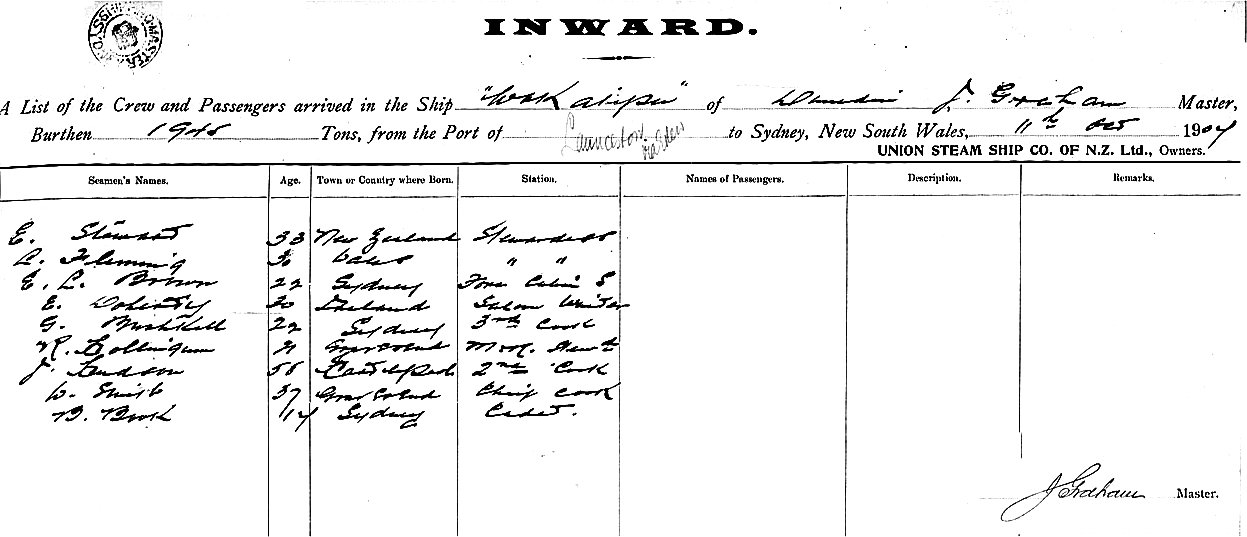 INWARD.
A List of the Crew and Passengers arrived in the Ship "Wakatipu" of Dunedin J. Graham Master,
Burthen 1945 Tons, from the Port of Launceston to Sydney, New South Wales, 11th Oct 1904
UNION STEAM SHIP CO. OF N.Z. Ltd., Owners.
Seamen's Names. Age. Town or Country where Born. Station. Names of Passengers. Description. Remarks.
E. Steward 33 New Zealand Stewardess
A. Fleming 30 Wales " "
E. L. Brown 22 Sydney Fore Cabin S
E. Doherty 30 Ireland Saloon Waiter
G. 22 Sydney 3rd Cook
R.
J. 58 2nd Cook
W. Smith 37 Chief Cook
B. Brook 14 Sydney Cadet.
J Graham Master.